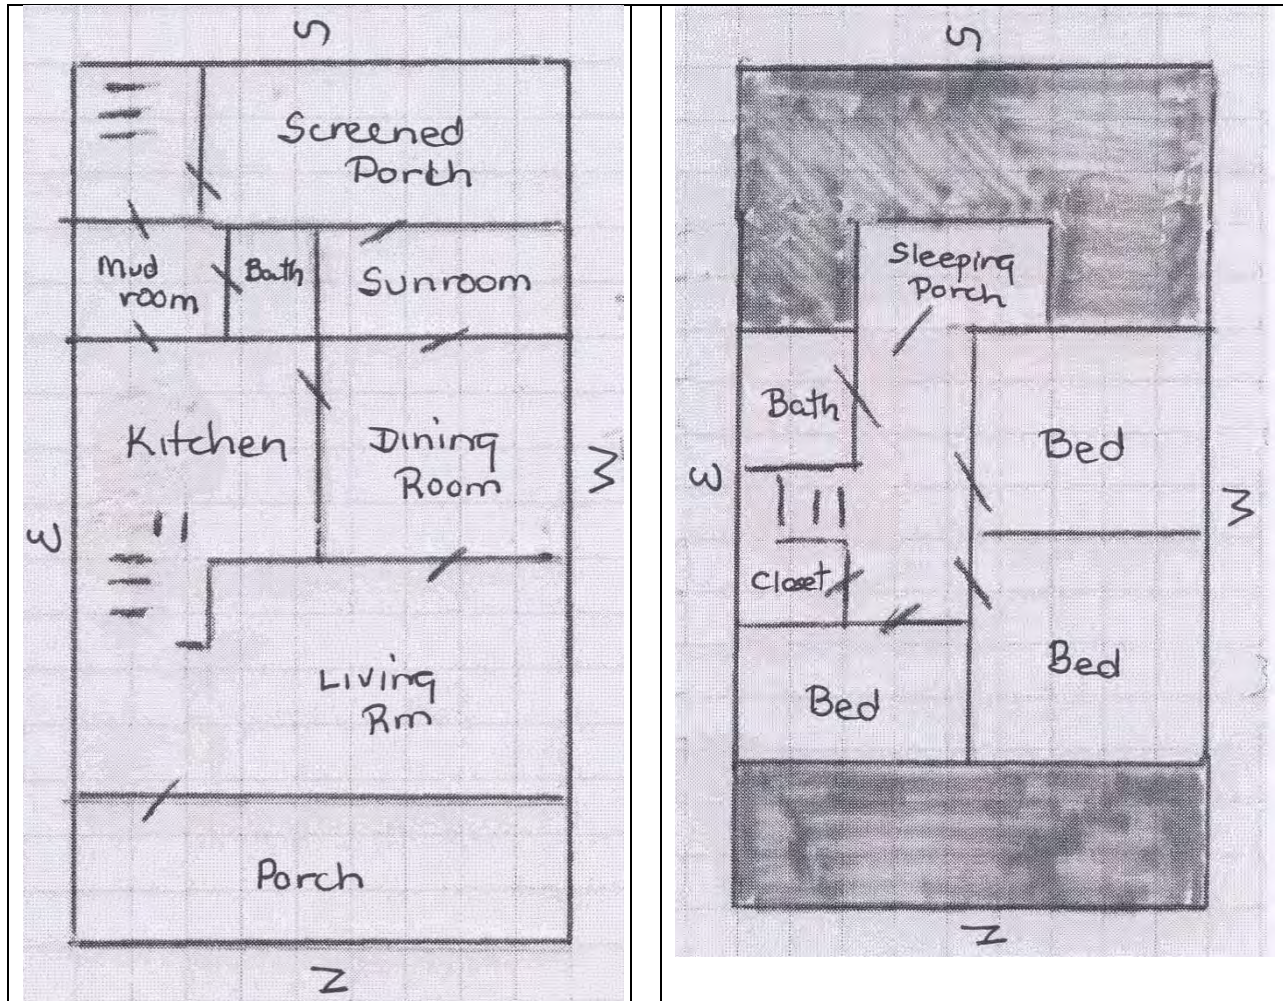 S
Screened
Porch
Mud
room
Bath
Sunroom
Kitchen
Dining
Room
E
W
Living
Rm
Porch
N
S
Sleeping
Porch
Bath
Bed
E
W
Closet
Bed
Bed
N